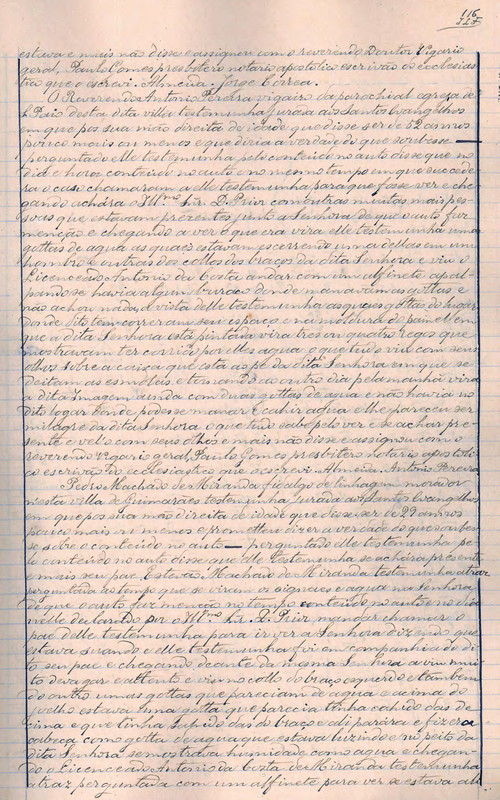 116
estava e mais não disse e assignou com o reverendo Doutor Vigario
geral, Paulo Gomes presbitero notario apostolico escrivão do ecclesias
tico que o screvi. Almeida. Jorge Correa.
O Reverendo Antonio Pereira vigairo da parochial egreja de
S. Paio desta dita villa testemunha jurada aos Santos Evangelhos
em que pos sua mão direita de idade que disse ser de 52 annos
pouco mais ou menos e que diria a verdade do que soubesse —
perguntado elle testemunha pelo conteúdo no auto disse que no
dia e hora conteúdo no auto e no mesmo tempo em que succede
ra o caso chamaram a elle testemunha para que fosse ver e che
gando achára o Ill.mo Snr. D. Prior com outras muitas mais pes
soas que estavam prezentes junto a Senhora de que o auto faz
menção e chegando a ver o que era vira elle testemunha umas
gottas de agua as quaes estavam escorrendo uma dellas em um
hombro e outras dos collos dos braços da dita Senhora e viu o
Licenceado Antonio da Costa andar com um alfinete apal
pando se havia algum buraco donde manavam as gottas e
não achou nada, á vista delle testemunha as quaes gottas do logar
donde dito tem correram seu espaço e na moldura do painel em
que a dita Senhora está pintada vira tres ou quatro regos que
mostravam ter corrido por elles agua o que tudo viu com seus
olhos sobre a caixa que está ao pé da dita Senhora em que se
deitam as esmollas e tornando ao outro dia pela manhã vira
a dita Imagem ainda com duas gottas de agua e não havia no
dito logar donde podesse manar e cahir agua e lhe pareceu ser
milagre da dita Senhora o que tudo sabe pelo ver e se achar pre
sente e vel-o com seus olhos e mais não disse e assignou com o
reverendo vigario geral, Paulo Gomes presbitero notario apostoli
co escrivão do ecclesiastico que o screvi. Almeida. Antonio Pereira
Pedro Machado de Miranda fidalgo de linhagem morador
n'esta villa de Guimarães testemunha jurada aos Santos Evangelhos
em que pos sua mão direita de idade que disse ser de 29 annos
pouco mais ou menos e prometteu dizer a verdade do que soubes
se sobre o conteúdo no auto — perguntado elle testemunha pe
lo conteúdo no auto disse que elle testemunha se achára prezente
e mais seu pae Estevão Machado de Miranda testemunha atraz
perguntada ao tempo que se viram os signaes e agua na Senhora
de que o auto faz menção no tempo conteúdo no auto e no dia
nelle declarado por o Ill.mo Snr. D. Prior mandar chamar o
pae delle testemunha para ir ver a Senhora dizendo que
estava suando e elle testemunha foi em companhia do di
to seu pae e chegando deante da mesma Senhora a viu mui
to devagar e attento e viu no collo do braço esquerdo e tambem
do outro umas gottas que pareciam de agua e acima do
joelho estava uma gotta que parecia tinha cahido das de
cima e que tinha sahido das do braço e ali parára e fizera
cabeça como gotta de agua que estava luzindo e no peito da
dita Senhora se mostrava humidade como agua e chegan
do o Licenceado Antonio da Costa de Miranda testemunha
atraz perguntada com um alfinete para ver se estava ali